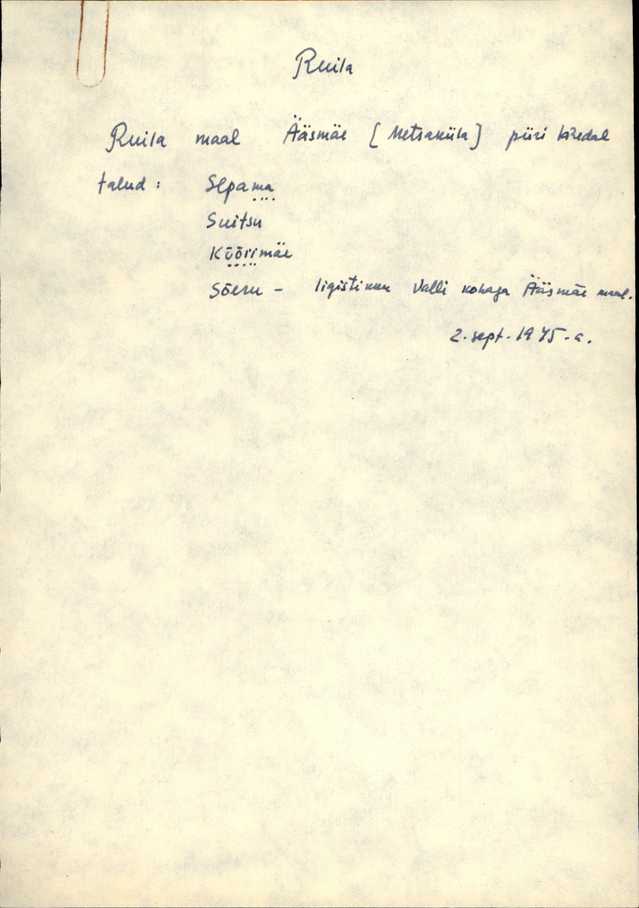 Ruila
Ruila maal Ääsmäe [Metsaküla] piiri lähedal
talud: Sepama
Suitsu
Küürimäe
Sõeru - ligistikku Valli kohaga Ääsmäe maal.
2. sept. 1975. a.